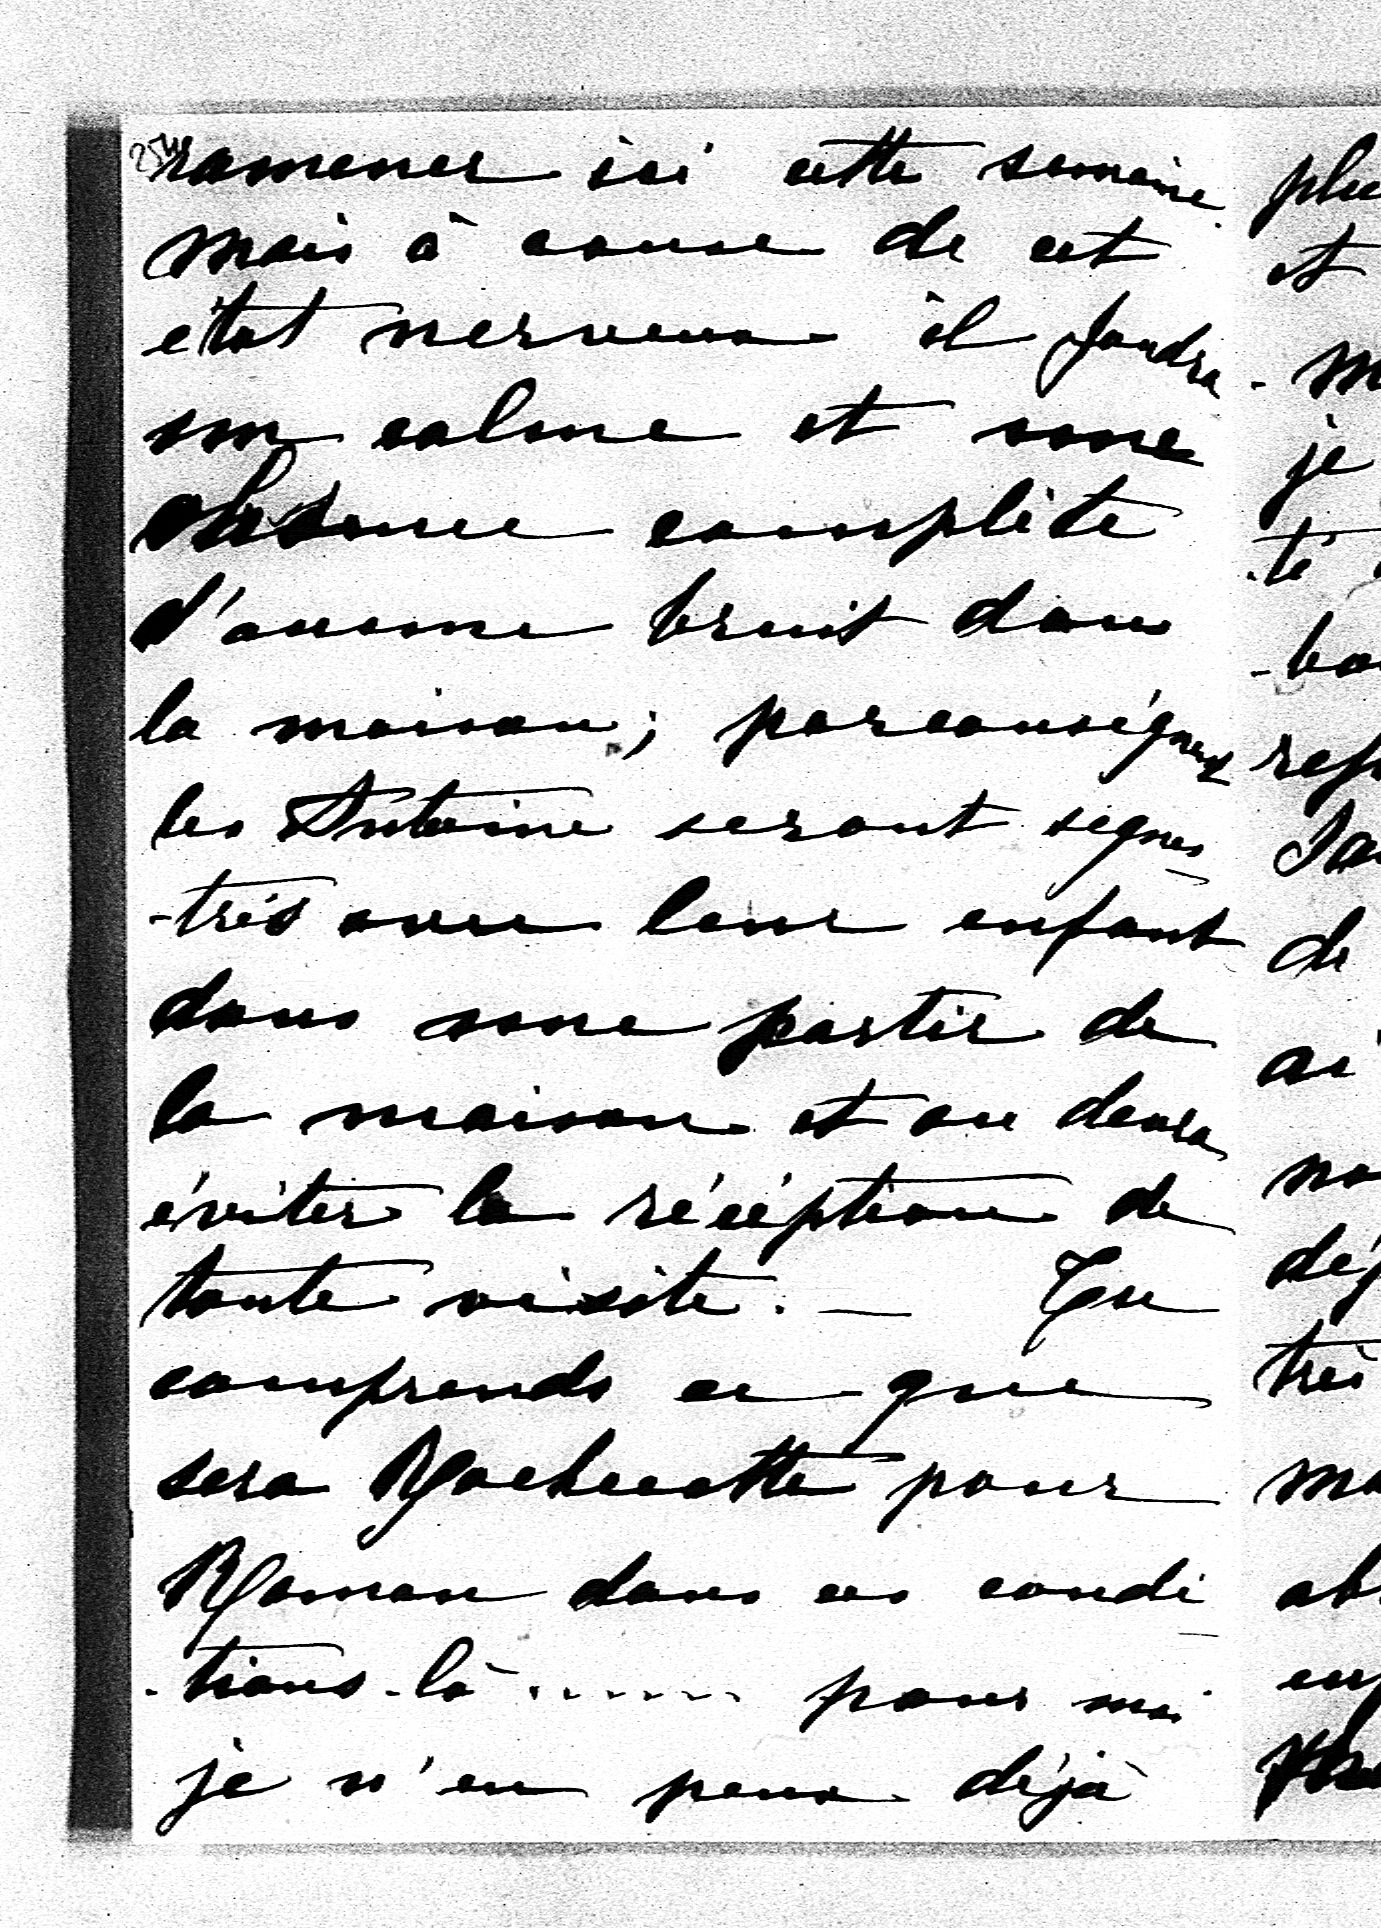 254
ramener ici cette semaine
mais à cause de cet
état nerveux il faudra
un calme et une
absence complète
d'aucune bruit dans
la maison; parconséquent
les Antoine seront seques
-trés avec leur enfant
dans une partie de
la maison et on devra
éviter la récéption de
toute visite. — Tu
comprends ce que
sera Rochecotte pour
Maman dans ces condi
-tions-là ...... pour moi
je n'en peux déjà
plu
et
- m
je
-té
-bo
ref
Jai
de
ai
no
dép
trè
ma
ab
enf